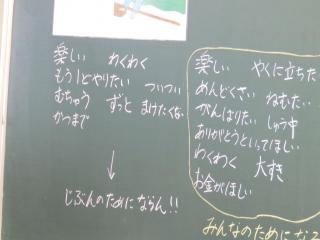 楽しい わくわく
もう1どやりたい ついつい
むちゅう ずっと まけたくない
かつまで
↓
じぶんのためにならん!!
楽しい やくに立ちた
めんどくさい ねむたい
がんばりたい しゅう中
ありがとうといってほしい
わくわく 大すき
お金がほしい
みんなのためになる